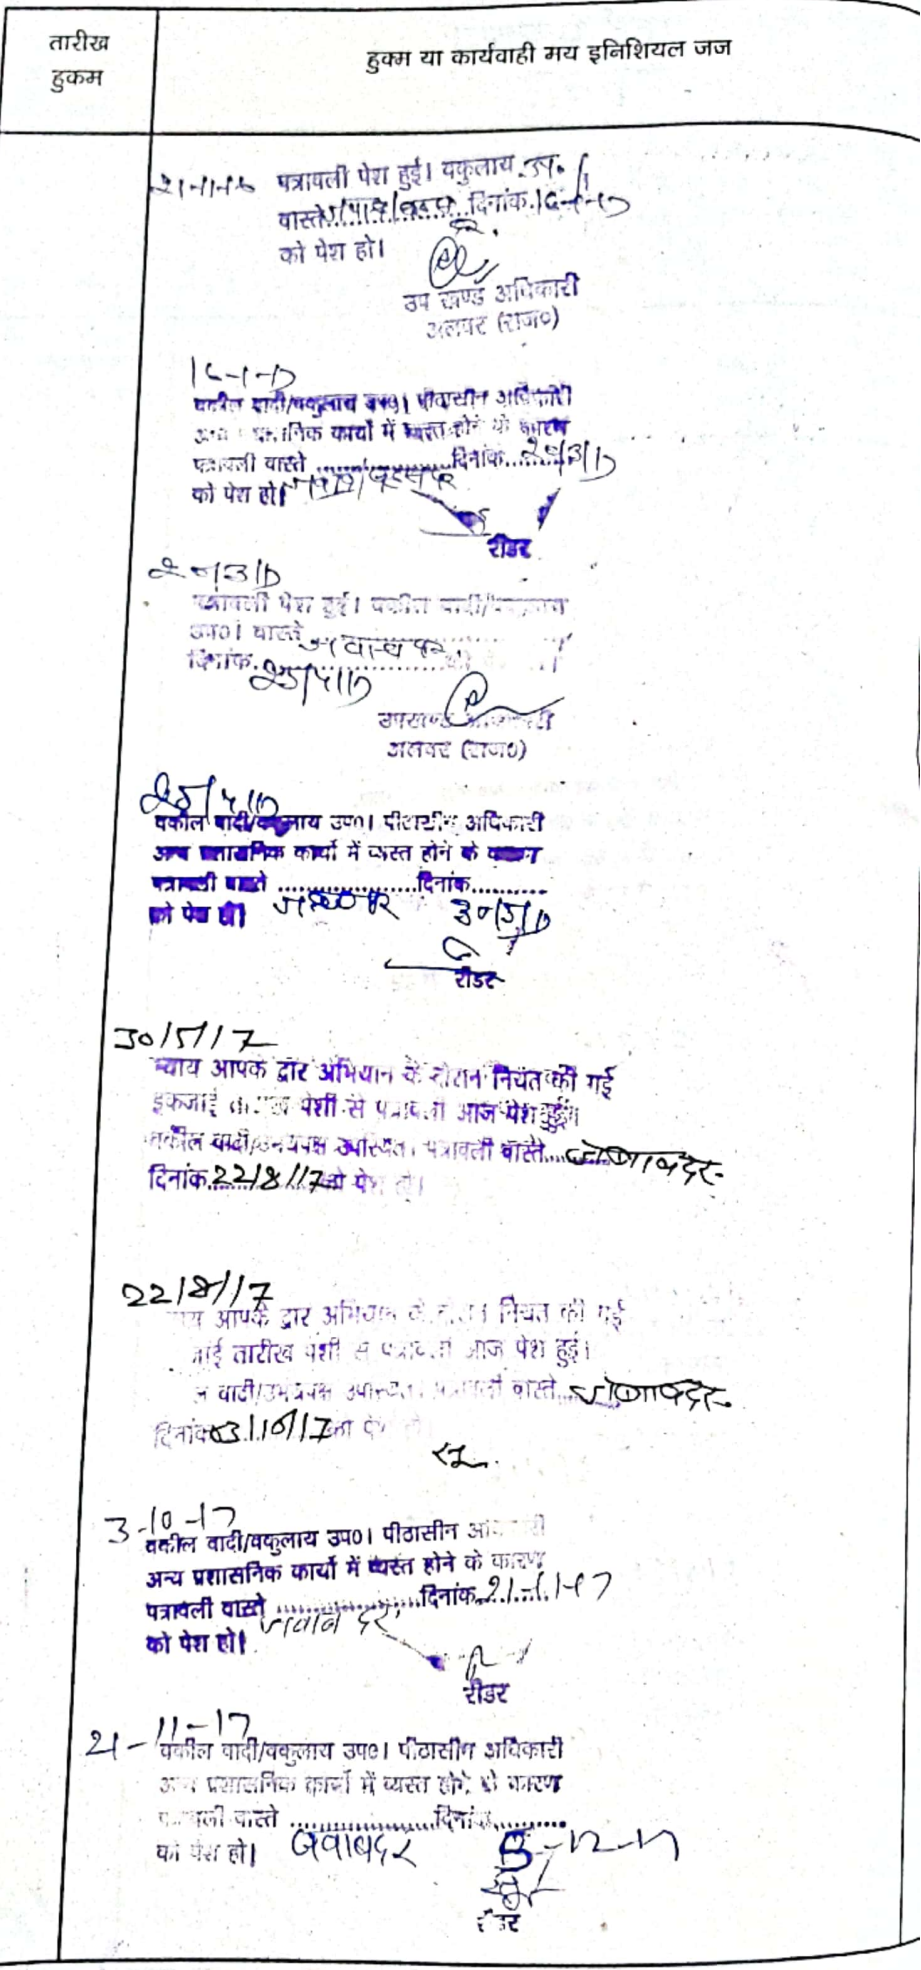 तारीख
हुकम
हुक्म या कार्यवाही मय इनिशियल जज
पत्रावली पेश हुई। वकुलाय उप.
वास्ते दिनांक
को पेश हो।
उप खण्ड अधिकारी
अलवर (राज०)
वकील वादी/वकुलाय उप०। पीठासीन अधिकारी
अन्य प्रशासनिक कार्यो में व्यस्त होने के कारण
पत्रावली वास्ते ..................दिनांक
को पेश हो।
रीडर
पत्रावली पेश हुई। वकील वादी/
उप०। वास्ते
दिनांक
25/4/17
उपखण्ड अधिकारी
अलवर (राज०)
25/4/17
वकील वादी/वकुलाय उप०। पीठासीन अधिकारी
अन्य प्रशासनिक कार्यो में व्यस्त होने के कारण
पत्रावली वास्ते ..................दिनांक..........
को पेश हो। 30/5/17
रीडर
30/5/17
न्याय आपके द्वार अभियान के दौरान नियत की गई
इकजाई तारीख पेशी से पत्रावली आज पेश हुई।
वकील वादी/उभयपक्ष उपस्थित। पत्रावली वास्ते
दिनांक 22/8/17 को पेश हो।
22/8/17
न्याय आपके द्वार अभियान के दौरान नियत की गई
जाई तारीख पेशी से पत्रावली आज पेश हुई।
वादी/उभयपक्ष उपस्थित। पत्रावली वास्ते
दिनांक 03/10/17 को पेश हो।
3-10-17
वकील वादी/वकुलाय उप०। पीठासीन अधिकारी
अन्य प्रशासनिक कार्यो में व्यस्त होने के कारण
पत्रावली वास्ते ..................दिनांक 21-11-17
को पेश हो। जवाब दर
रीडर
21-11-17
वकील वादी/वकुलाय उप०। पीठासीन अधिकारी
अन्य प्रशासनिक कार्यो में व्यस्त होने के कारण
पत्रावली वास्ते ..................दिनांक..........
को पेश हो। जवाबदर
रीडर